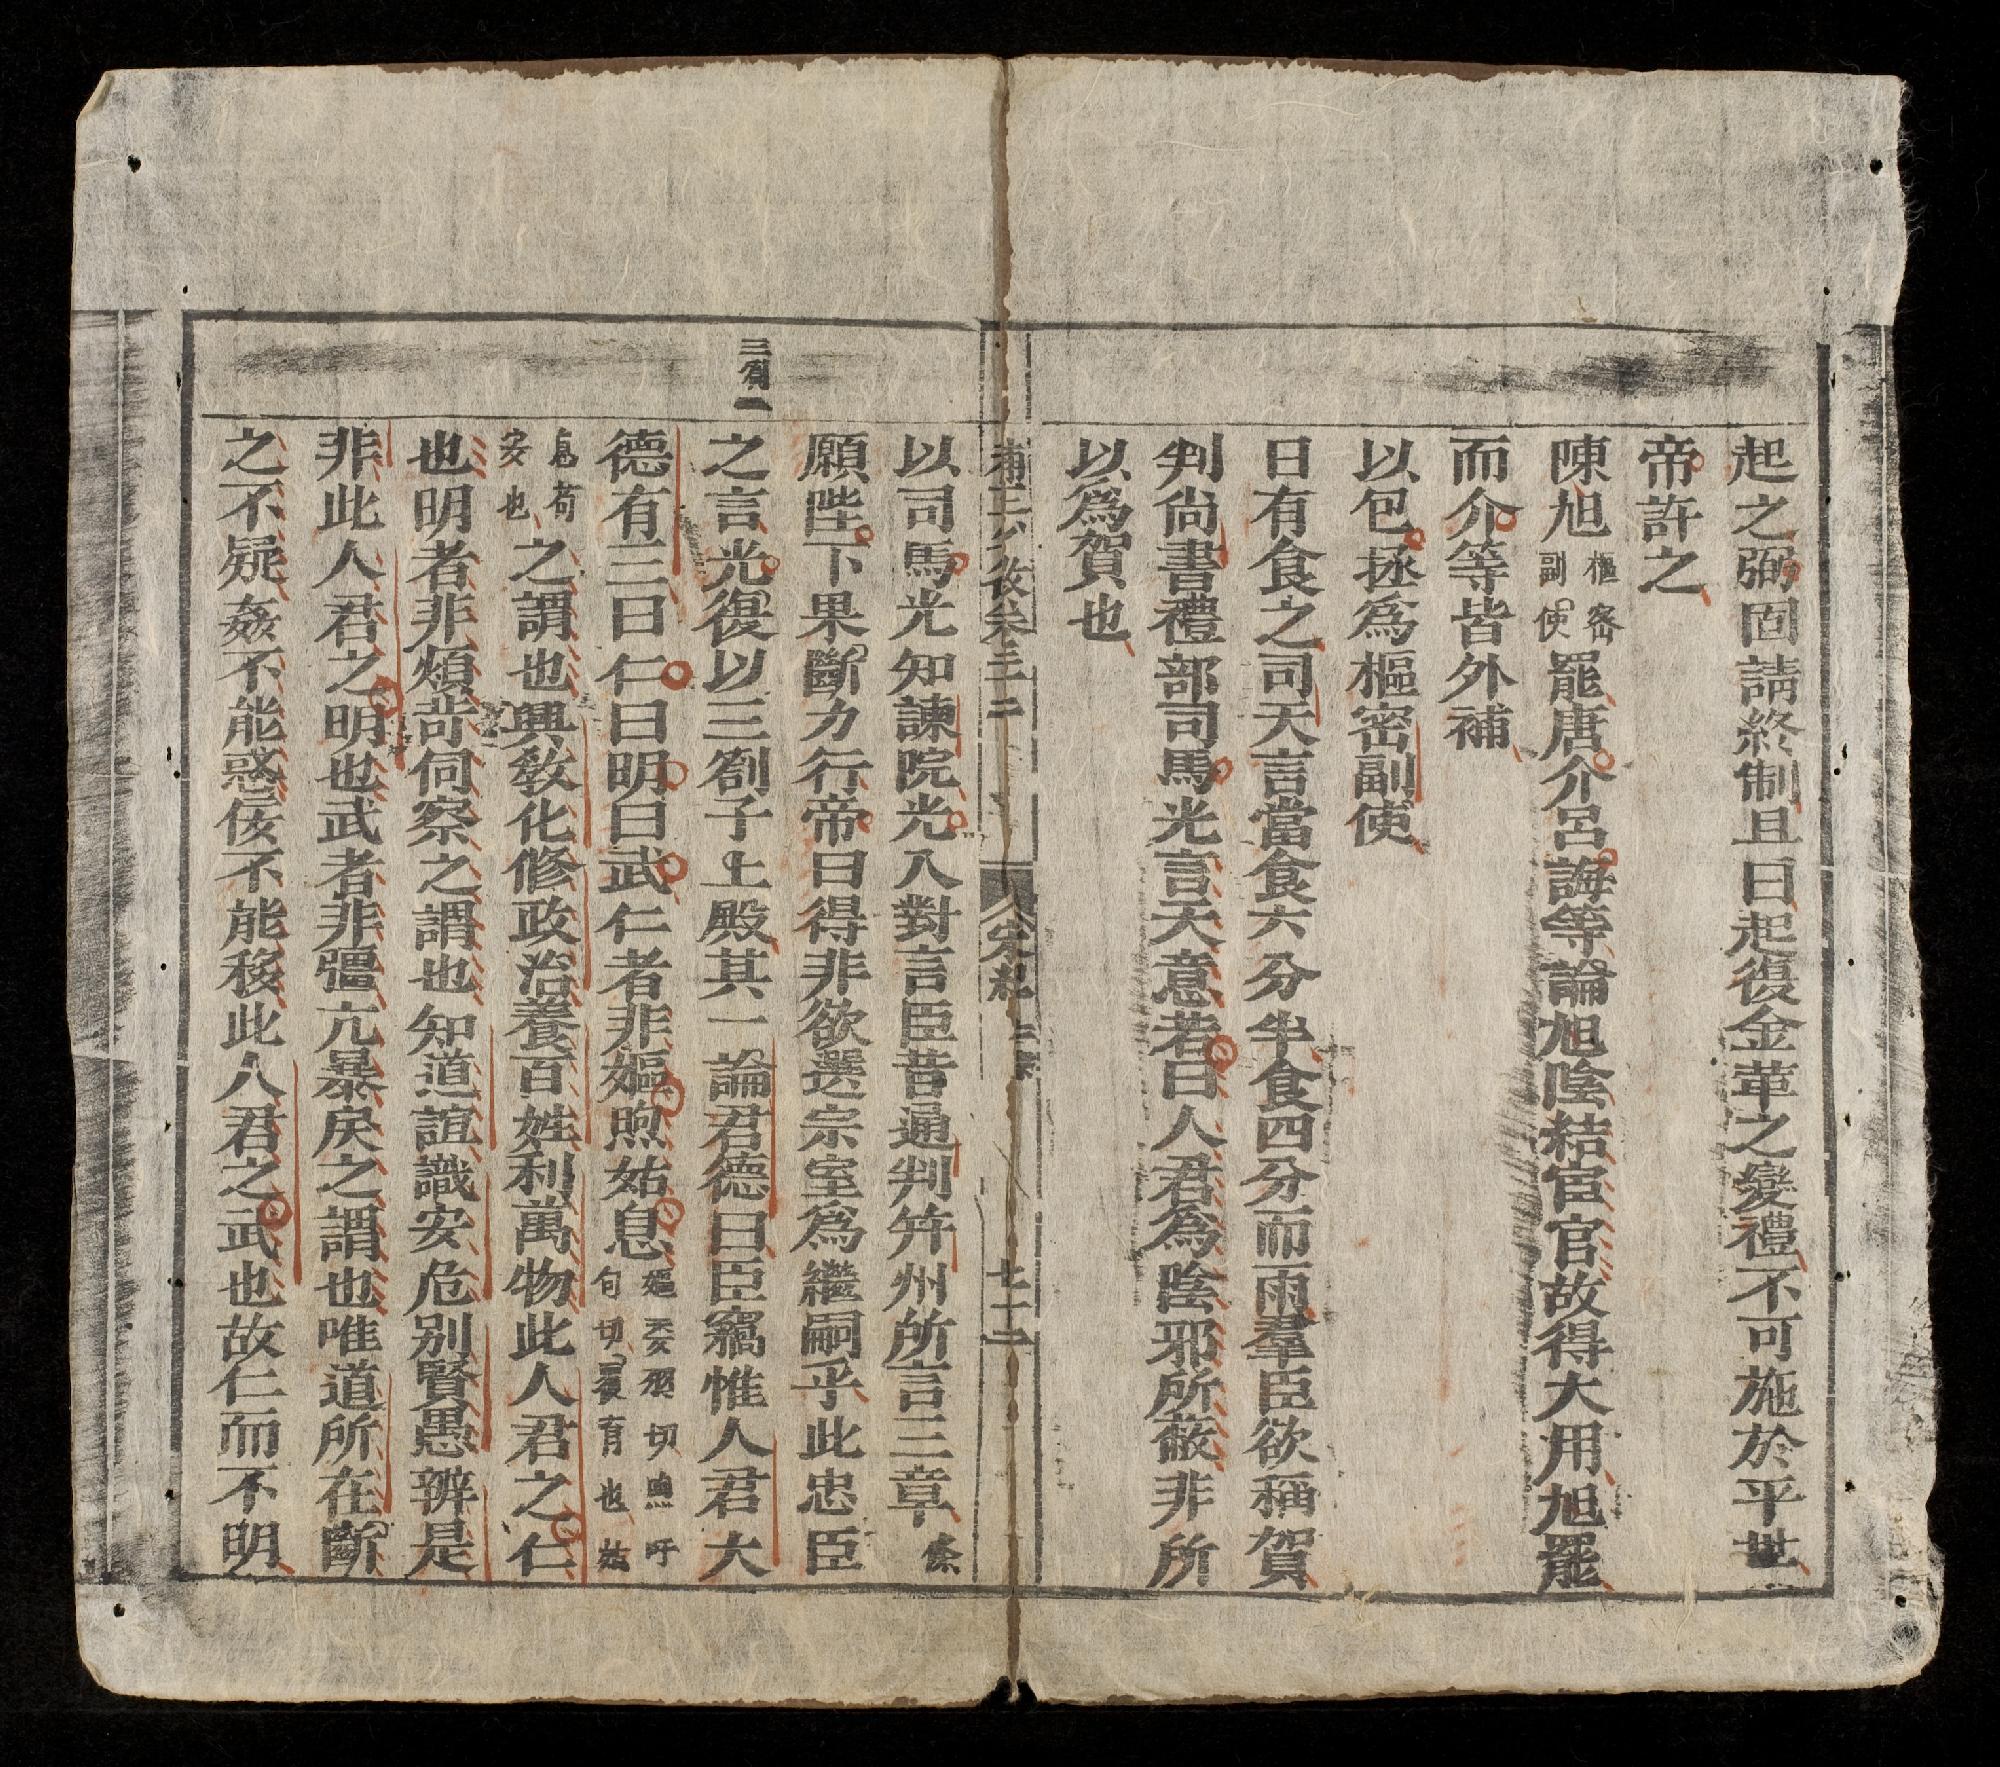 起之弼固請終制且曰起復金革之變禮不可施於平世
帝許之
陳旭樞密副使罷唐介呂誨等論旭陰結宦官故得大用旭罷
而介等皆外補
以包拯爲樞密副使
日有食之司天言當食六分半食四分而雨羣臣欲稱賀
判尙書禮部司馬光言天意若曰人君爲陰邪所蔽非所
以爲賀也
宋紀
七十二
以司馬光知諫院光入對言臣昔通判幷州所言三章
願陛下果斷力行帝曰得非欲選宗室爲繼嗣乎此忠臣
之言光復以三劄子上殿其一論君德曰臣竊惟人君大
德有三曰仁曰明曰武仁者非嫗煦姑息嫗 切煦吁句切 也姑
息苟安也之謂也興敎化修政治養百姓利萬物此人君之仁
也明者非煩苛伺察之謂也知道誼識安危別賢愚辨是
非此人君之明也武者非彊亢暴戾之謂也唯道所在斷
之不疑姦不能惑佞不能移此人君之武也故仁而不明